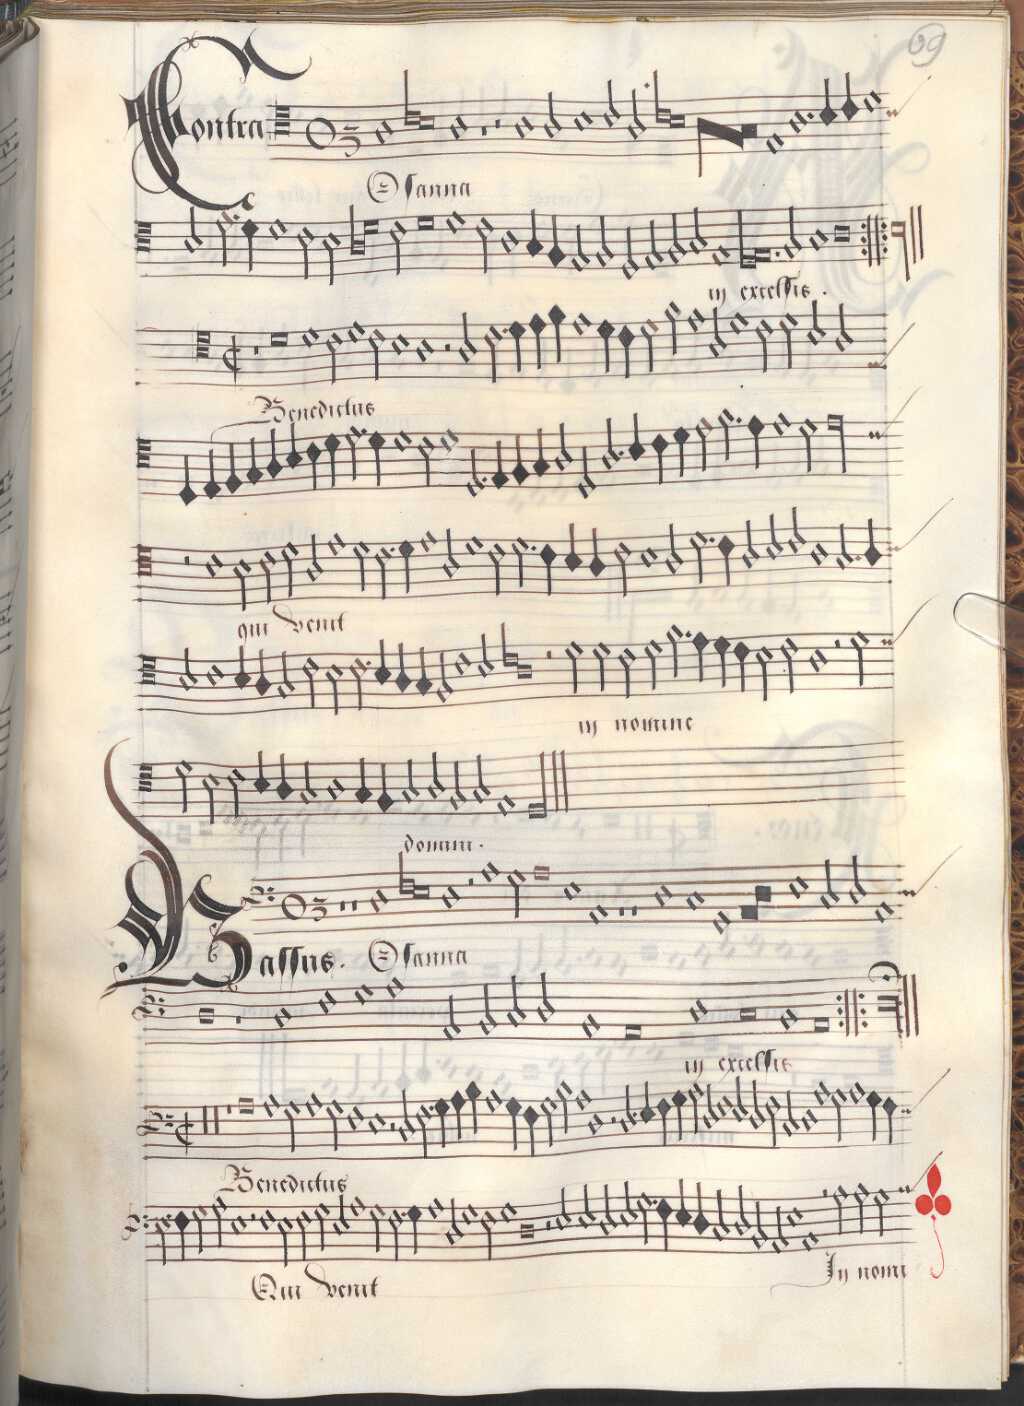 69
Contra
Osanna
in excelsis.
Benedictus
qui venit
in nomine
domini.
Bassus. Osanna
in excelsis
Benedictus
Qui venit In nomi